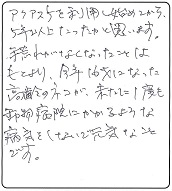 アクアスラを利用し始めてから、
5年以上たったかと思います。
手荒れがなくなったことは
もとより、今年16才になった
高齢のネコが、未だに1度も
動物病院にかかるような
病気をしないで元気なこと
です。